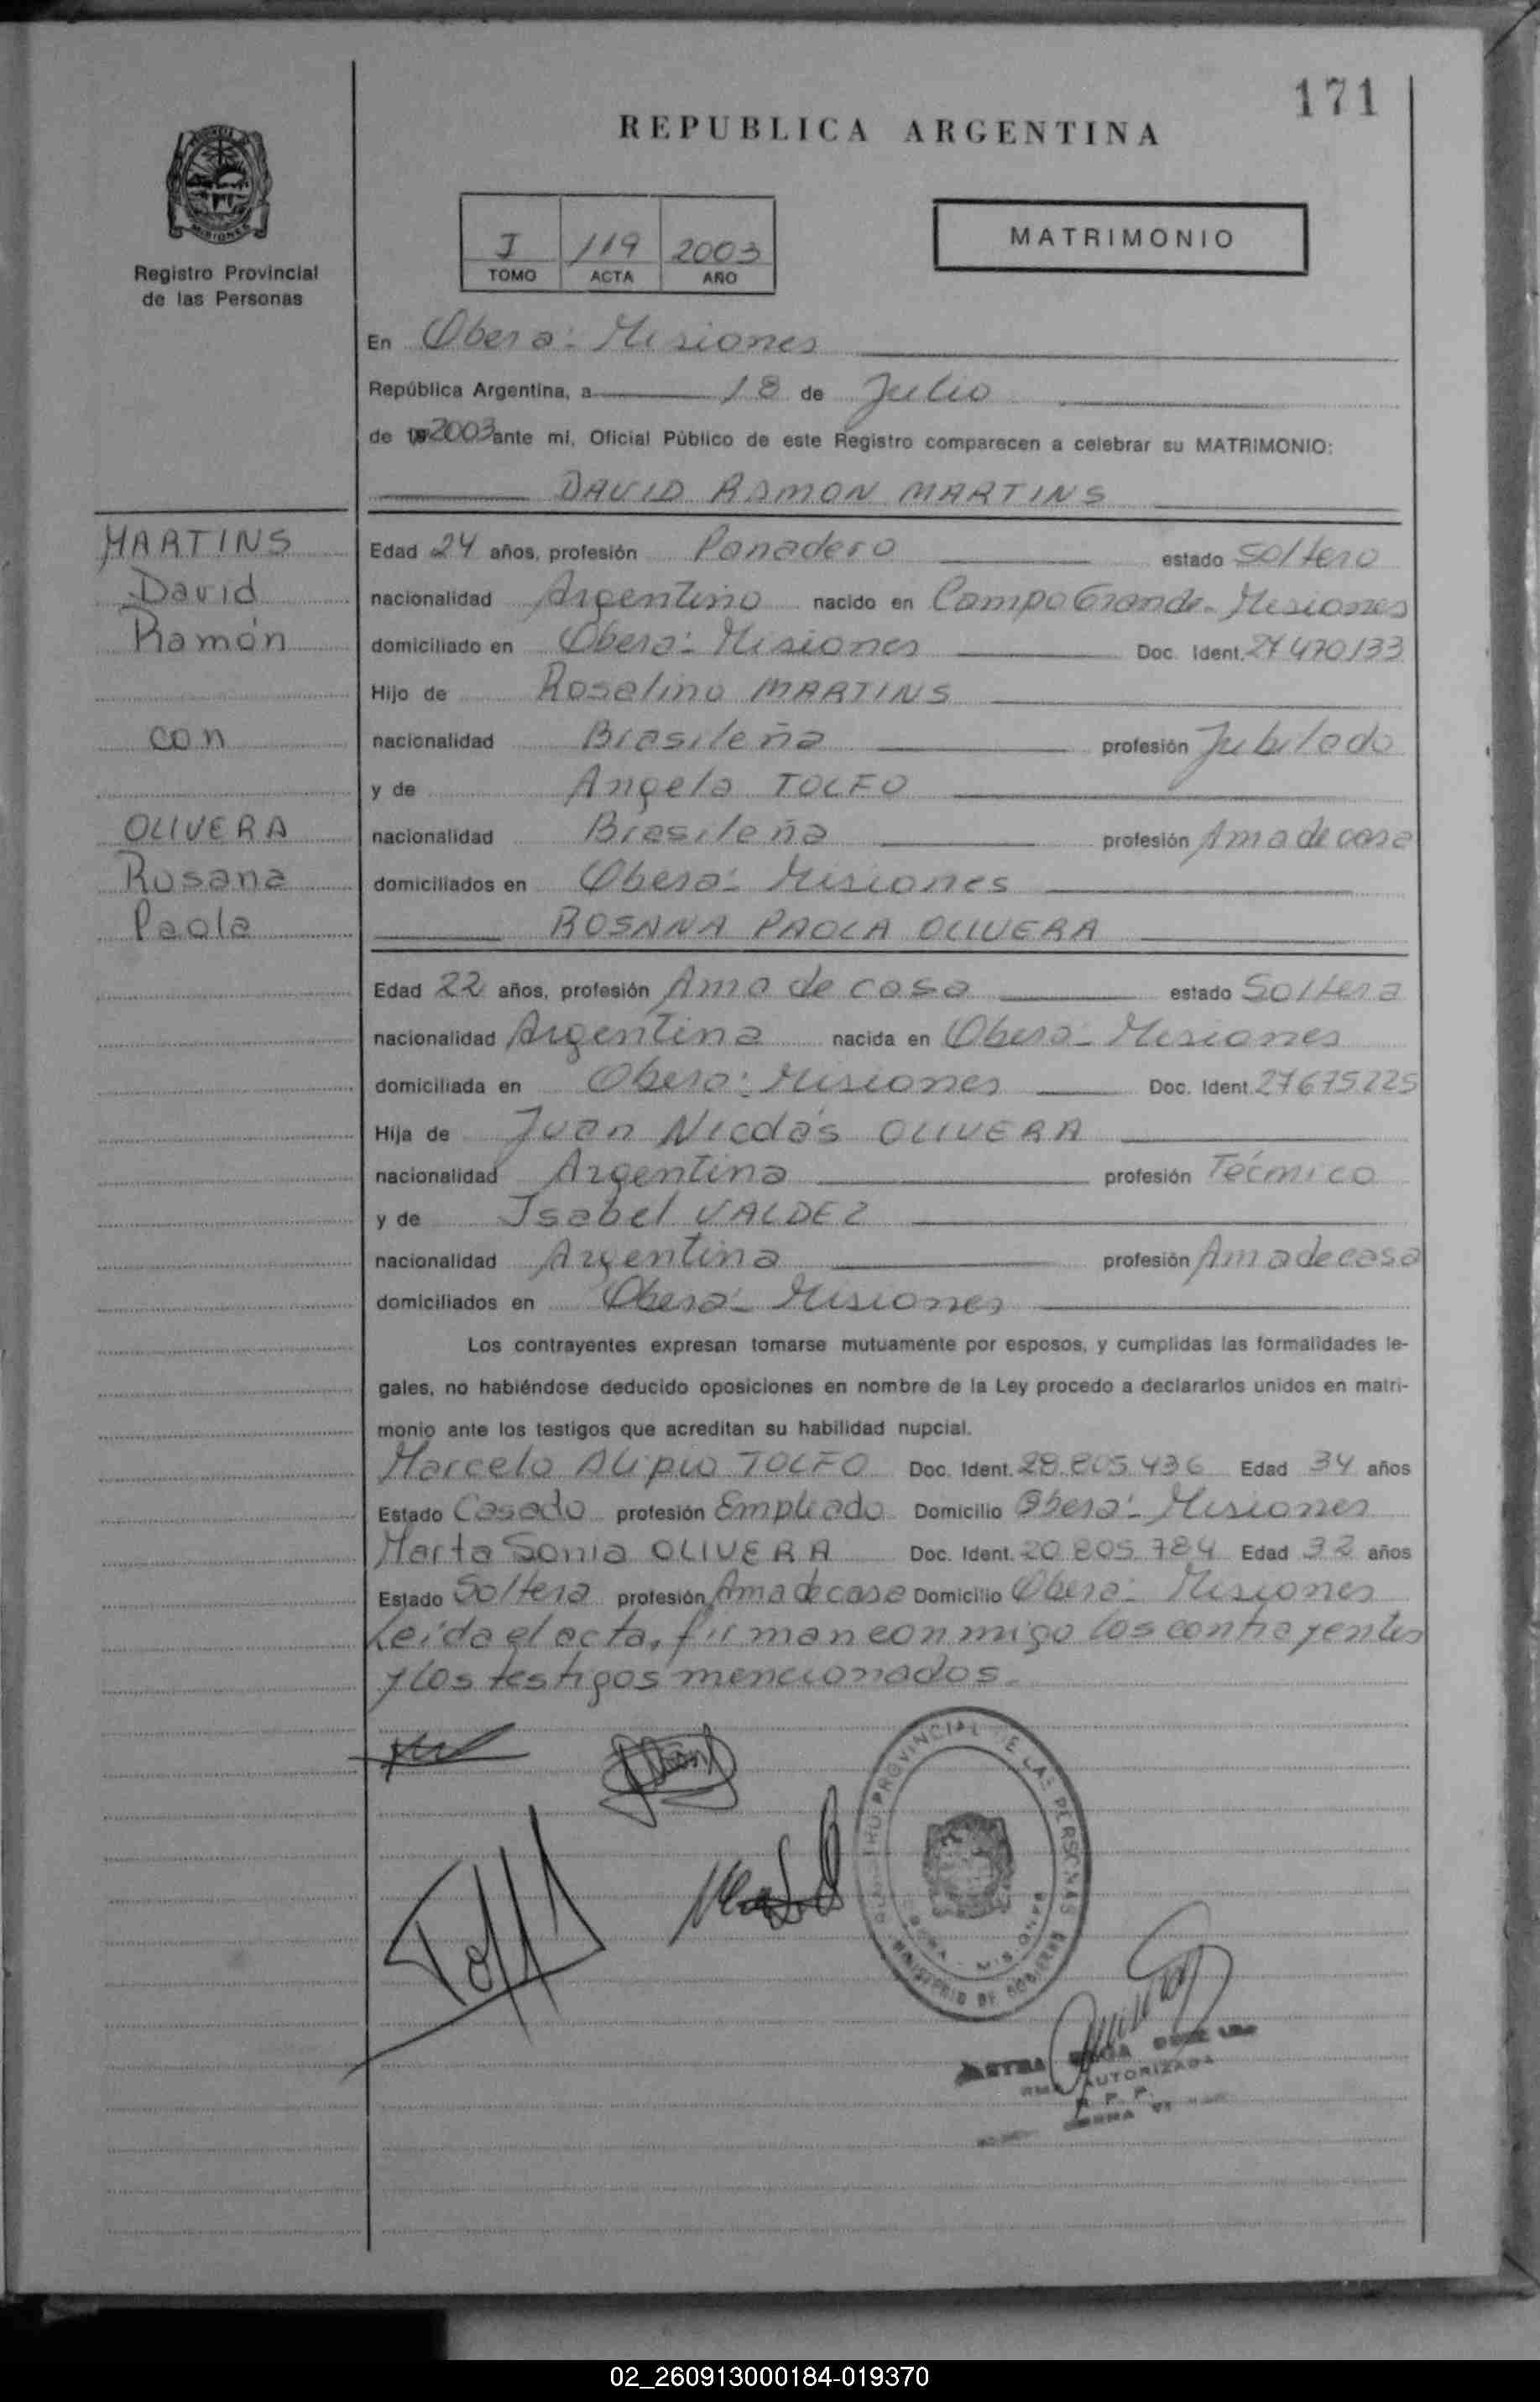 171
REPUBLICA ARGENTINA
MISIONES
Registro Provincial
de las Personas
I 119 2003
TOMO ACTA AÑO
MATRIMONIO
En Oberá: Misiones
República Argentina, a 18 de Julio
de 2003 ante mí, Oficial Público de este Registro comparecen a celebrar su MATRIMONIO:
DAVID RAMON MARTINS
MARTINS
David
Ramón
con
OLIVERA
Rosana
Paola
Edad 24 años, profesión Panadero estado Soltero
nacionalidad Argentino nacido en Campo Grande - Misiones
domiciliado en Oberá: Misiones Doc. Ident. 27470133
Hijo de Roselino MARTINS
nacionalidad Brasileña profesión Jubilado
y de Angela TOLFO
nacionalidad Brasileña profesión Ama de casa
domiciliados en Oberá: Misiones
ROSANA PAOLA OLIVERA
Edad 22 años, profesión Ama de casa estado Soltera
nacionalidad Argentina nacida en Oberá - Misiones
domiciliada en Oberá: Misiones Doc. Ident. 27675225
Hija de Juan Nicolás OLIVERA
nacionalidad Argentina profesión Técnico
y de Isabel VALDEZ
nacionalidad Argentina profesión Ama de casa
domiciliados en Oberá - Misiones
Los contrayentes expresan tomarse mutuamente por esposos, y cumplidas las formalidades le-
gales, no habiéndose deducido oposiciones en nombre de la Ley procedo a declararlos unidos en matri-
monio ante los testigos que acreditan su habilidad nupcial.
Marcelo Alipio TOLFO Doc. Ident. 28.805.436 Edad 34 años
Estado Casado profesión Empleado Domicilio Oberá: Misiones
Marta Sonia OLIVERA Doc. Ident. 20.805.784 Edad 32 años
Estado Soltera profesión Ama de casa Domicilio Oberá: Misiones
Leida el acta, firman conmigo los contrayentes
y los testigos mencionados.
PROVINCIAL DE LAS PERSONAS
MINISTERIO DE GOBIERNO
AUTORIZADA
02_260913000184-019370